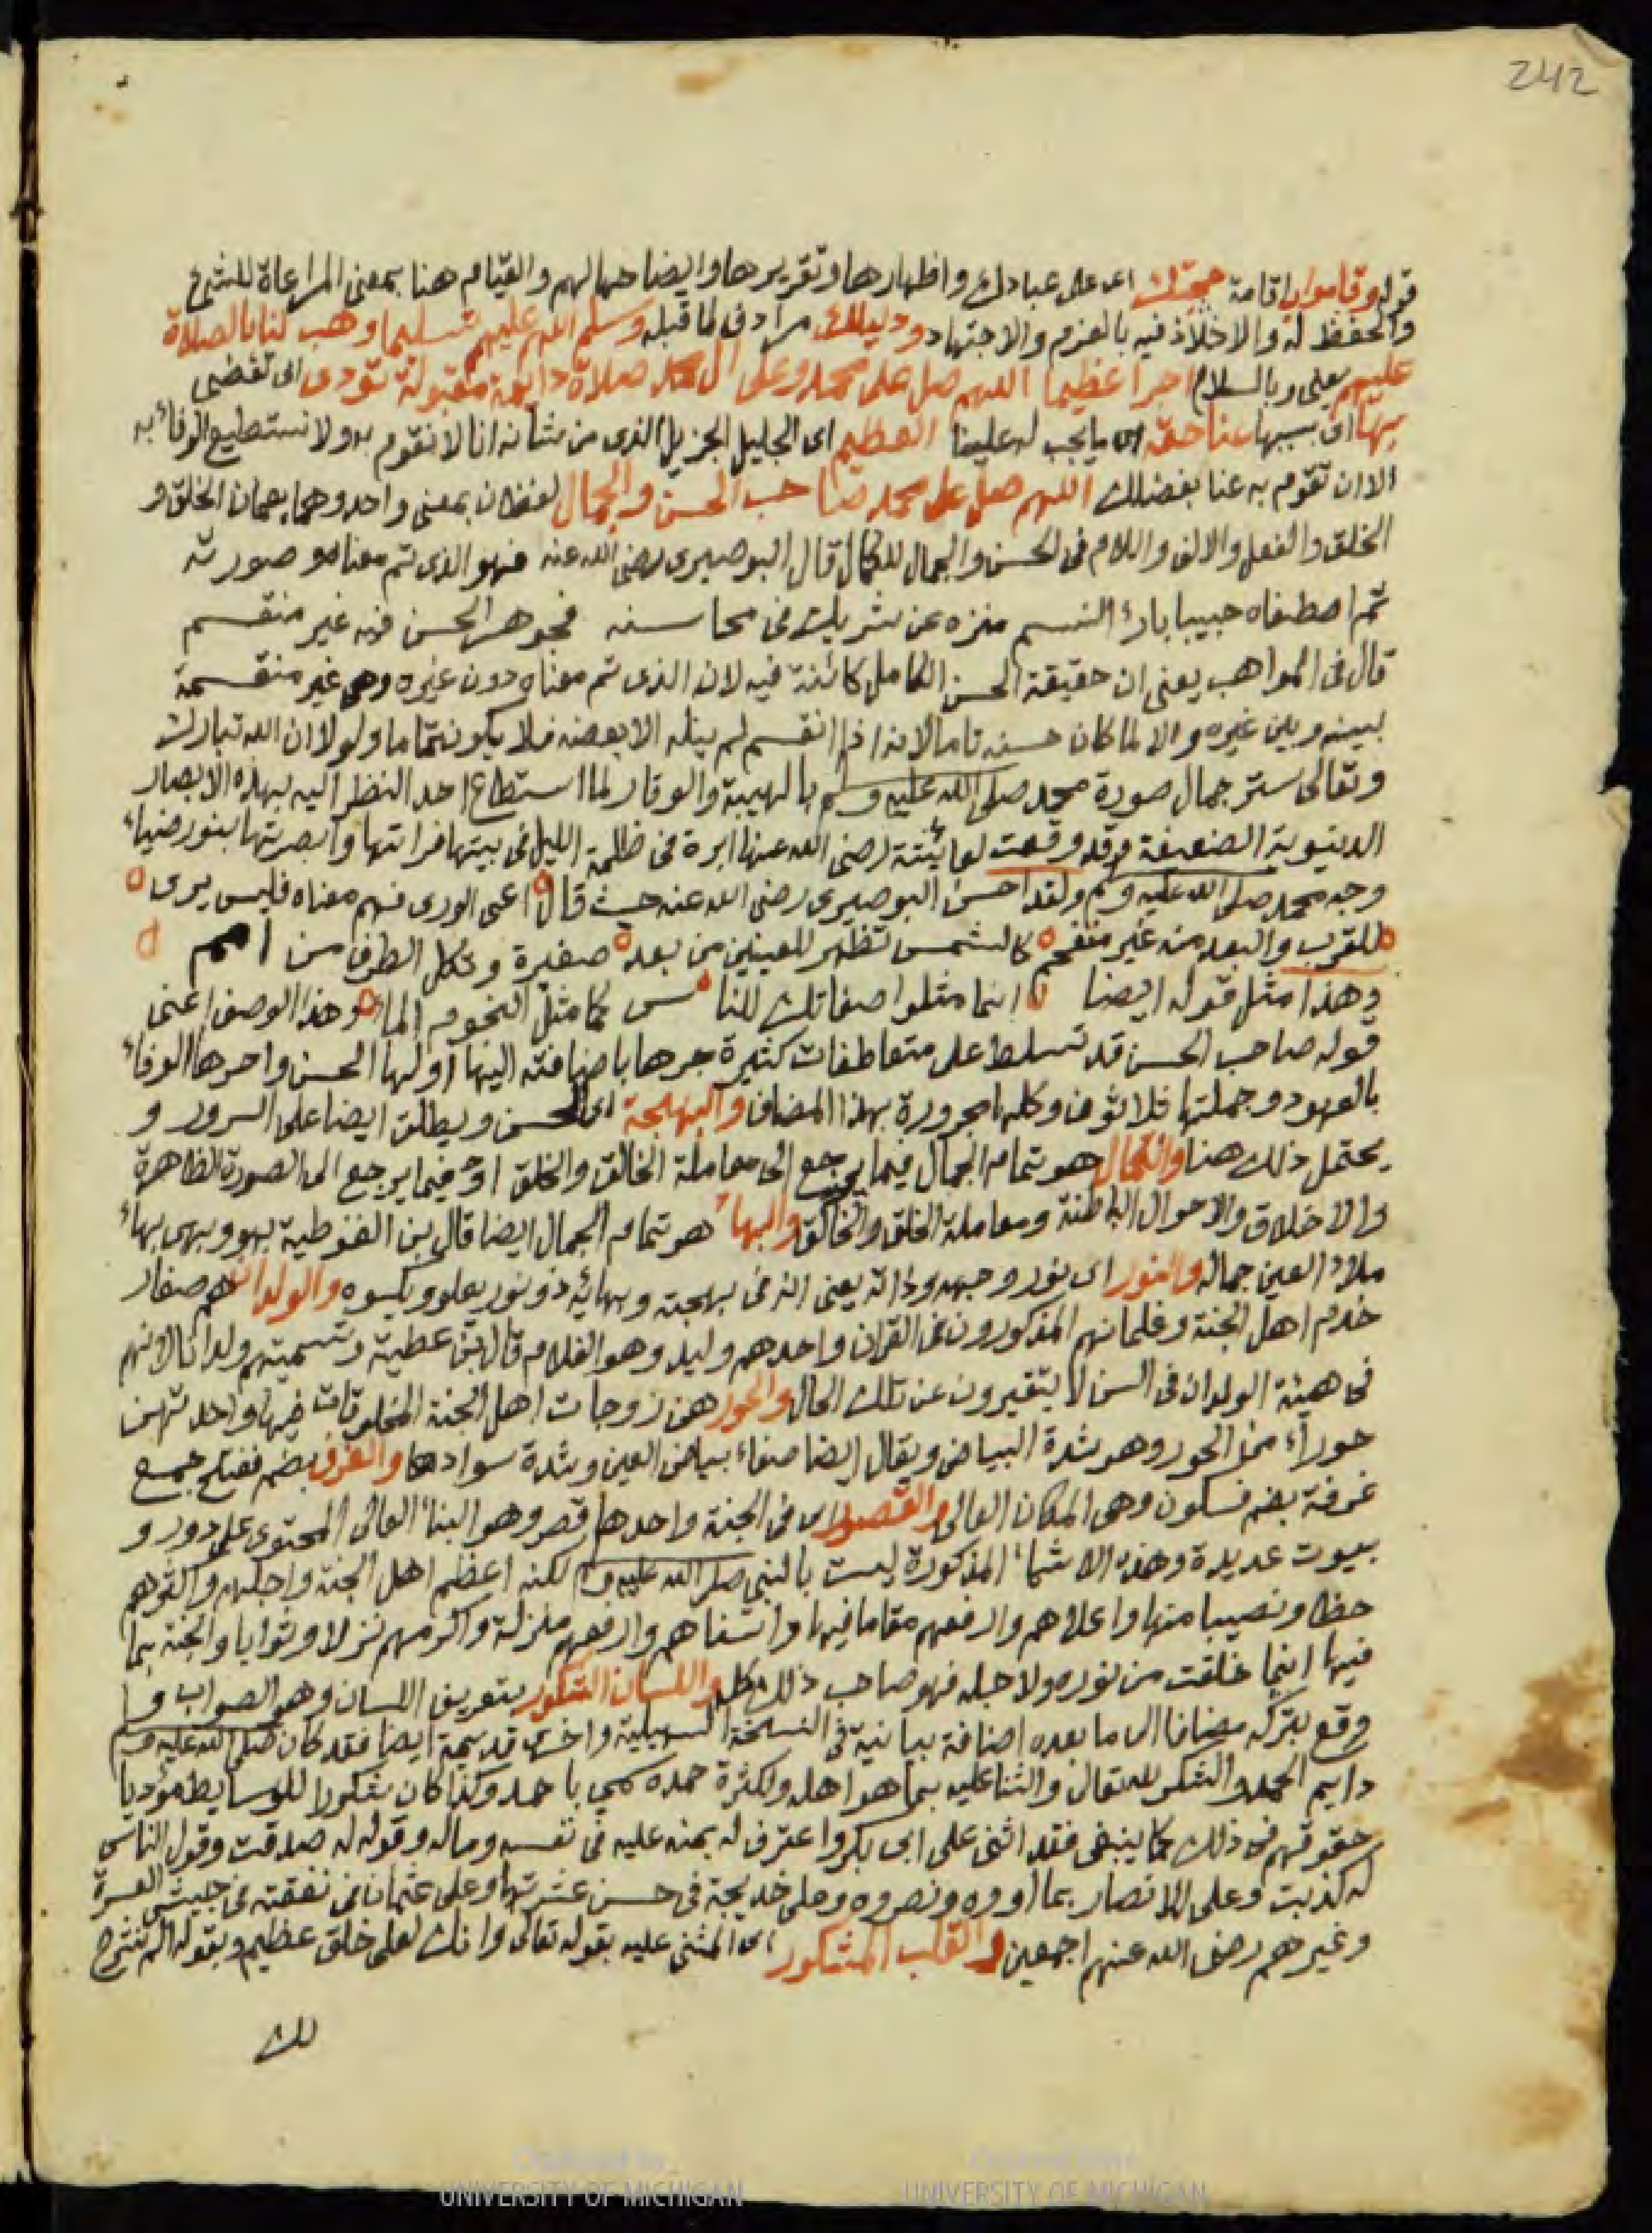 242
قوله وقاموا باقامة حجتك اى على عبادك واظهارها وتقريرها وايضاحها لهم والقيام هنا بمعنى المراعاة للشئ
والحفظ له والاخذ فيه بالعزم والاجتهاد ودليلك مرادف لما قبله وسلم اللهم عليهم تسليما وهب لنا بالصلاة
عليهم يعنى وبالسلام اجرا عظيما اللهم صل على محمد وعلى ال محمد صلاة دايمة مقبولة تؤدى اى تقضى
بها اى بسببها عنا حقه اى ما يجب له علينا العظيم اى الجليل الجزيل الذى من شانه انا لا نقوم به ولا نستطيع الوفاء به
الا ان تقوم به عنا بفضلك اللهم صل على محمد صاحب الحسن والجمال لفظان بمعنى واحد وهما يعمان الخلق و
الخلق والفعل والالف واللام فى الحسن والجمال للكمال قال البوصيرى رضى الله عنه فهو الذى تم معناه وصورته
ثم اصطفاه حبيبا بارئ النسم منزه عن شريك فى محاسنه فجوهر الحسن فيه غير منقسم
قال فى المواهب يعنى ان حقيقة الحسن الكامل كائنة فيه لان الذى تم معناه دون غيره وهى غير منقسمة
بينه وبين غيره والا لما كان حسنه تاما لانه اذا انقسم لم ينله الا بعضه فلا يكون تماما ولولا ان الله تبارك
وتعالى ستر جمال صورة محمد صلى الله عليه وسلم بالهيبة والوقار لما استطاع احد النظر اليه بهذه الابصار
الدنيوية الضعيفة وقد وقعت لعائشة رضى الله عنها ابرة فى ظلمة الليل فى بيتها فراتها وابصرتها بنور ضياء
وجه محمد صلى الله عليه وسلم ولقد احسن البوصيرى رضى الله عنه حيث قال اعى الورى فهم معناه فليس يرى
للقرب والبعد منه غير منفحم كالشمس تظهر للعينين من بعد صغيرة وتكل الطرف من امم
وهذا مثل قوله ايضا انما مثلوا صفاتك للناس كما مثل النجوم الماء وهذا الوصف اعنى
قوله صاحب الحسن قد تسلط على متعاطفات كثيرة جرها باضافته اليها اولها الحسن واخرها الوفاء
بالعهود وجملتها ثلاثون وكلها مجرورة بهذا المضاف والبهجة اى الحسن ويطلق ايضا على السرور و
يحتمل ذلك هنا والكمال هو تمام الجمال فيما يرجع الى معاملة الخالق والخلق او فيما يرجع الى الصورة الظاهرة
والاخلاق والاحوال الباطنة ومعاملة الخلق والخالق والبهاء هو تمام الجمال ايضا قال بن القوطية بهو وبهى بهاء
ملاء العين جماله والنور اى نور وجهه وذاته يعنى انه فى بهجته وبهائه ذو نور يعلو ويكسوه والولدان هم صغار
خدم اهل الجنة وغلمانهم المذكورون فى القران واحدهم وليد وهو الغلام قال ابن عطية وتسميتهم ولدانا لانهم
فى هيئة الولدان فى السن لا يتغيرون عن تلك الحال والحور هن زوجات اهل الجنة المخلوقات فيها واحدتهن
حوراء من الحور وهو شدة البياض ويقال ايضا صفاء بياض العين وشدة سوادها والغرف بضم ففتح جمع
غرفة بضم فسكون وهى المكان العالى والقصور اى فى الجنة واحدها قصر وهو البناء العالى المحتوى على دور و
بيوت عديدة وهذه الاشياء المذكورة ليست بالنبى صلى الله عليه وسلم لكنه اعظم اهل الجنة واجلهم واكثرهم
حظا ونصيبا منها واعلاهم وارفعهم مقاما فيها واسناهم وارفعهم منزلة واكرمهم نزلا وثوابا والجنة بما
فيها انما خلقت من نوره ولاجله فهو صاحب ذلك كله واللسان الشكور بتعريف اللسان وهو الصواب وما
وقع بتركه مضافا الى ما بعده اضافة بيانية فى النسخة السهيلية واخرى قديمة ايضا فقد كان صلى الله عليه وسلم
دايم الحمد والشكر لله تعالى والثنا عليه بما هو اهله ولكثرة حمده سمى باحمد وكذا كان شكورا للوسايط مؤديا
حقوقهم فى ذلك كما ينبغى فقد اثنى على ابى بكر واعترف له بمنه عليه فى نفسه وماله وقوله له صدقت وقول الناس
له كذبت وعلى الانصار بما اووه ونصروه وعلى خديجة فى حسن عشرتها وعلى عثمان فى نفقته فى جيش العسرة
وغيرهم رضى الله عنهم اجمعين والقلب المشكور اى المثنى عليه بقوله تعالى وانك لعلى خلق عظيم وبقوله الم نشرح
لك
UNIVERSITY OF MICHIGAN
UNIVERSITY OF MICHIGAN